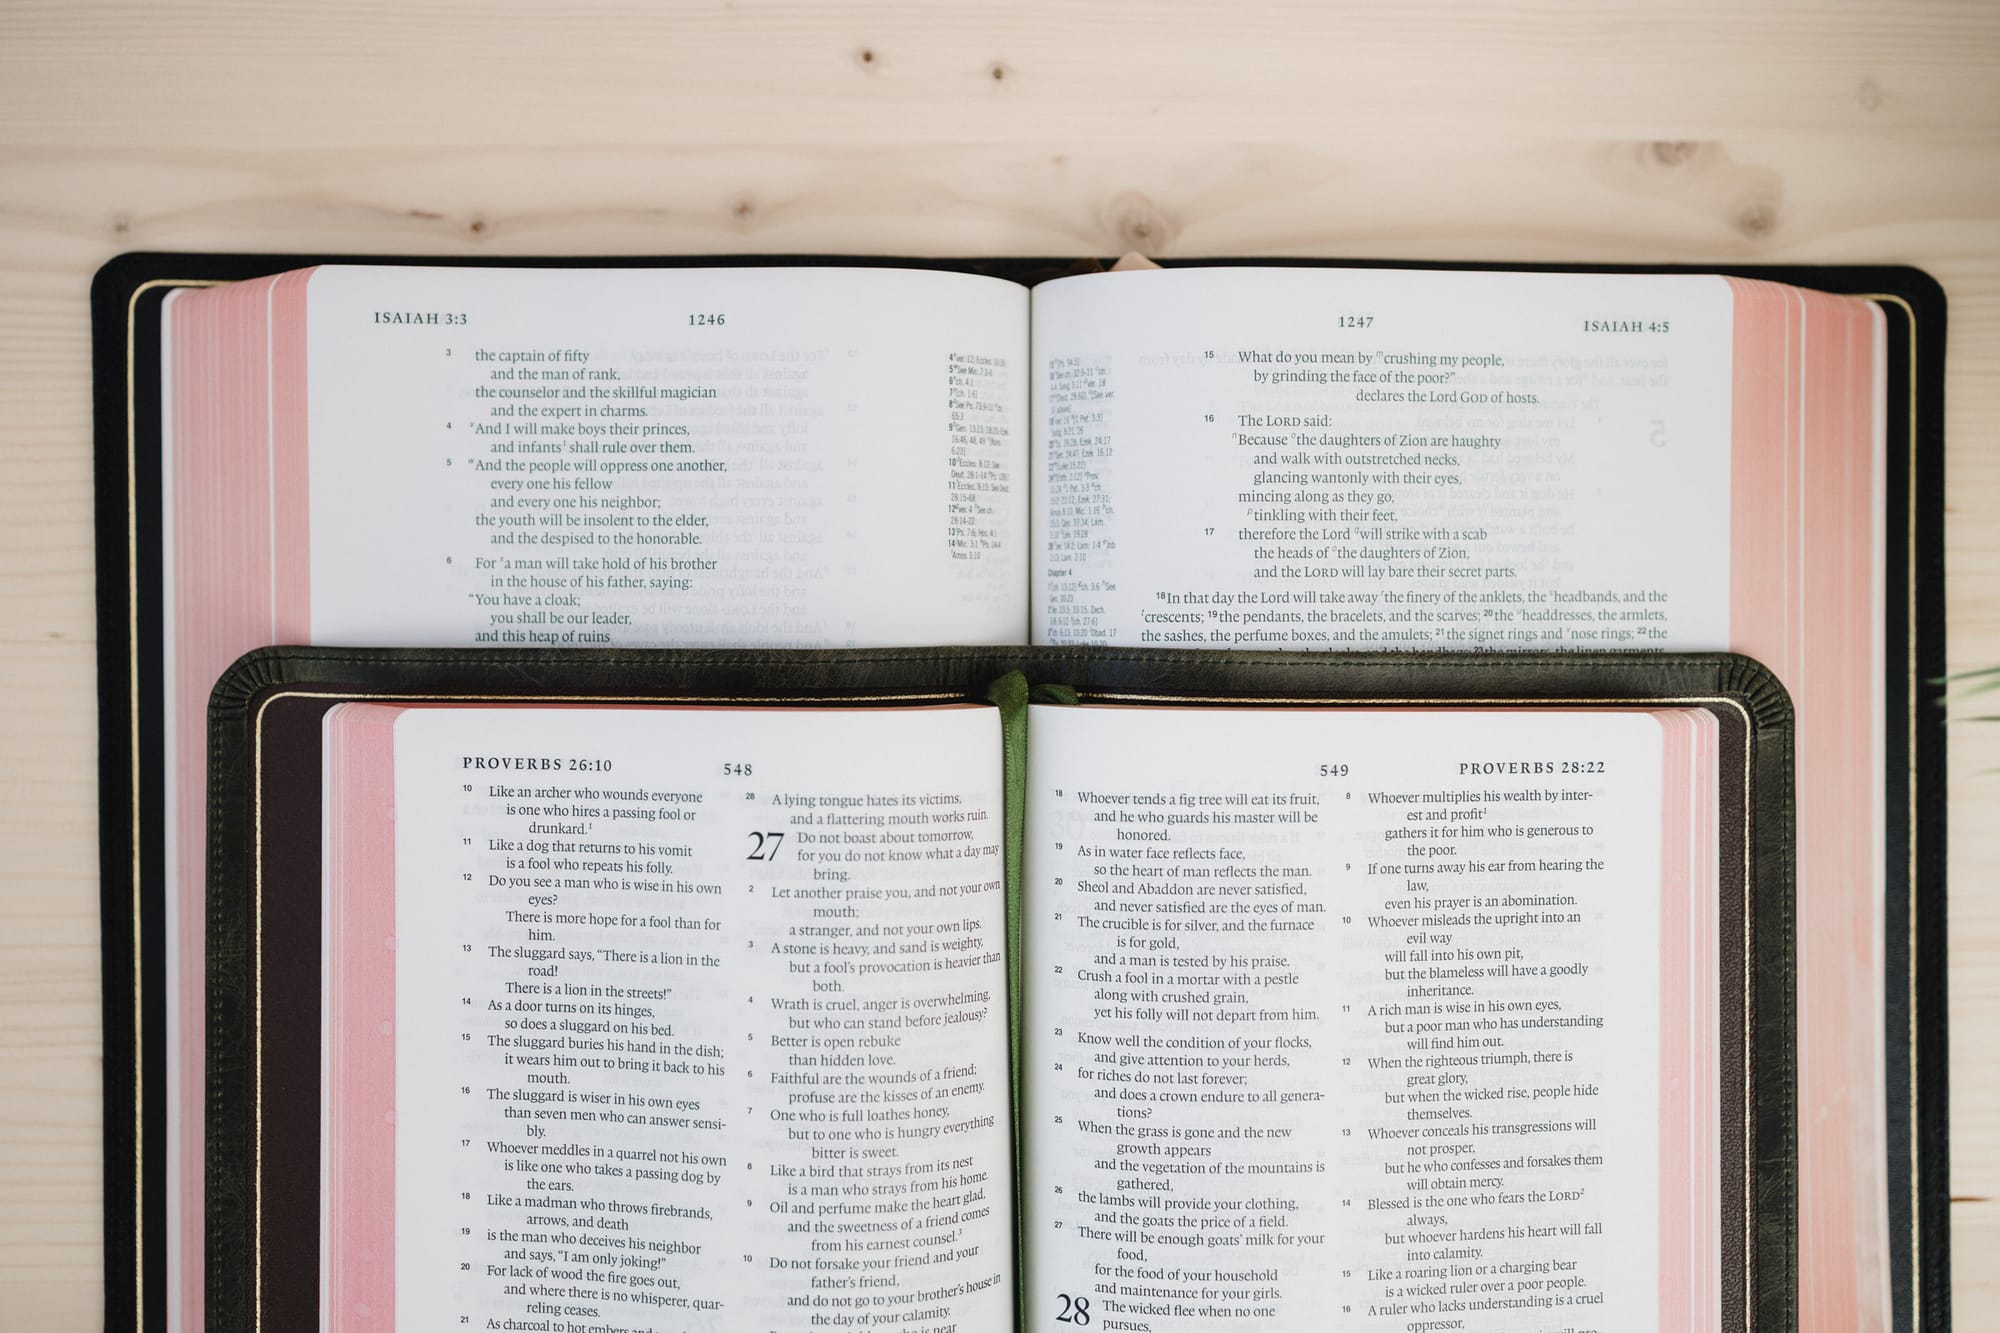 ISAIAH 3:3
1246
3 the captain of fifty
and the man of rank,
the counselor and the skillful magician
and the expert in charms.
4 vAnd I will make boys their princes,
and infants1 shall rule over them.
5 wAnd the people will oppress one another,
every one his fellow
and every one his neighbor;
the youth will be insolent to the elder,
and the despised to the honorable.
6 For xa man will take hold of his brother
in the house of his father, saying:
“You have a cloak;
you shall be our leader,
and this heap of ruins
1247
ISAIAH 4:5
15 What do you mean by mcrushing my people,
by grinding the face of the poor?”
declares the Lord GOD of hosts.
16 The LORD said:
nBecause othe daughters of Zion are haughty
and walk with outstretched necks,
glancing wantonly with their eyes,
mincing along as they go,
ptinkling with their feet,
17 therefore the Lord qwill strike with a scab
the heads of othe daughters of Zion,
and the LORD will lay bare their secret parts.
18 In that day the Lord will take away rthe finery of the anklets, the sheadbands, and the
tcrescents; 19 the pendants, the bracelets, and the scarves; 20 the uheaddresses, the armlets,
the sashes, the perfume boxes, and the amulets; 21 the signet rings and vnose rings; 22 the
PROVERBS 26:10
548
10 Like an archer who wounds everyone
is one who hires a passing fool or
drunkard.1
11 Like a dog that returns to his vomit
is a fool who repeats his folly.
12 Do you see a man who is wise in his own
eyes?
There is more hope for a fool than for
him.
13 The sluggard says, “There is a lion in the
road!
There is a lion in the streets!”
14 As a door turns on its hinges,
so does a sluggard on his bed.
15 The sluggard buries his hand in the dish;
it wears him out to bring it back to his
mouth.
16 The sluggard is wiser in his own eyes
than seven men who can answer sensi-
bly.
17 Whoever meddles in a quarrel not his own
is like one who takes a passing dog by
the ears.
18 Like a madman who throws firebrands,
arrows, and death
19 is the man who deceives his neighbor
and says, “I am only joking!”
20 For lack of wood the fire goes out,
and where there is no whisperer, quar-
reling ceases.
21 As charcoal to hot embers and
28 A lying tongue hates its victims,
and a flattering mouth works ruin.
27 Do not boast about tomorrow,
for you do not know what a day may
bring.
2 Let another praise you, and not your own
mouth;
a stranger, and not your own lips.
3 A stone is heavy, and sand is weighty,
but a fool's provocation is heavier than
both.
4 Wrath is cruel, anger is overwhelming,
but who can stand before jealousy?
5 Better is open rebuke
than hidden love.
6 Faithful are the wounds of a friend;
profuse are the kisses of an enemy.
7 One who is full loathes honey,
but to one who is hungry everything
bitter is sweet.
8 Like a bird that strays from its nest
is a man who strays from his home.
9 Oil and perfume make the heart glad,
and the sweetness of a friend comes
from his earnest counsel.3
10 Do not forsake your friend and your
father's friend,
and do not go to your brother's house in
the day of your calamity.
is near
549
PROVERBS 28:22
18 Whoever tends a fig tree will eat its fruit,
and he who guards his master will be
honored.
19 As in water face reflects face,
so the heart of man reflects the man.
20 Sheol and Abaddon are never satisfied,
and never satisfied are the eyes of man.
21 The crucible is for silver, and the furnace
is for gold,
and a man is tested by his praise.
22 Crush a fool in a mortar with a pestle
along with crushed grain,
yet his folly will not depart from him.
23 Know well the condition of your flocks,
and give attention to your herds,
24 for riches do not last forever;
and does a crown endure to all genera-
tions?
25 When the grass is gone and the new
growth appears
and the vegetation of the mountains is
gathered,
26 the lambs will provide your clothing,
and the goats the price of a field.
27 There will be enough goats' milk for your
food,
for the food of your household
and maintenance for your girls.
28 The wicked flee when no one
pursues,
8 Whoever multiplies his wealth by inter-
est and profit1
gathers it for him who is generous to
the poor.
9 If one turns away his ear from hearing the
law,
even his prayer is an abomination.
10 Whoever misleads the upright into an
evil way
will fall into his own pit,
but the blameless will have a goodly
inheritance.
11 A rich man is wise in his own eyes,
but a poor man who has understanding
will find him out.
12 When the righteous triumph, there is
great glory,
but when the wicked rise, people hide
themselves.
13 Whoever conceals his transgressions will
not prosper,
but he who confesses and forsakes them
will obtain mercy.
14 Blessed is the one who fears the LORD2
always,
but whoever hardens his heart will fall
into calamity.
15 Like a roaring lion or a charging bear
is a wicked ruler over a poor people.
16 A ruler who lacks understanding is a cruel
oppressor,